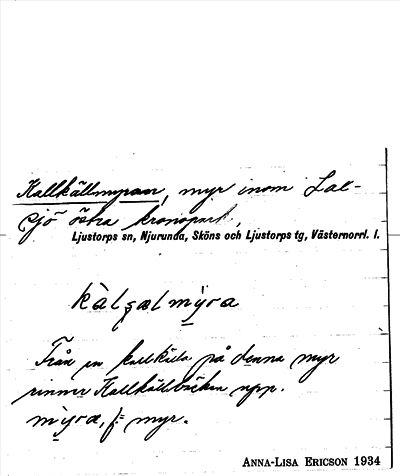 Kallkällmyran, myr inom Lal-
sjö östra kronopark,
Ljustorps sn, Njurunda, Sköns och Ljustorps tg, Västernorrl. l.
kàlçælmỳra
Från en kallkälla på denna myr
rinner Kallkällbäcken upp.
mỳra, f= myr.
ANNA-LISA ERICSON 1934